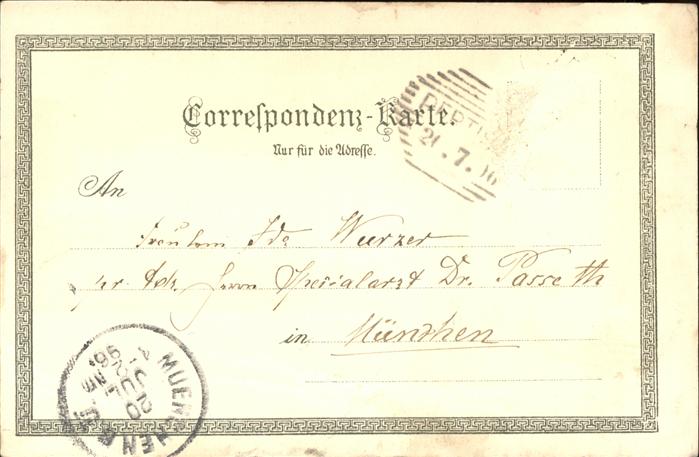 Correspondenz-Karte.
Nur für die Adresse.
20.7.
An
Fräulein Ida Wurzer
pr. Adr. Herrn Spezialarzt Dr. Passeth
in München
MUENCHEN